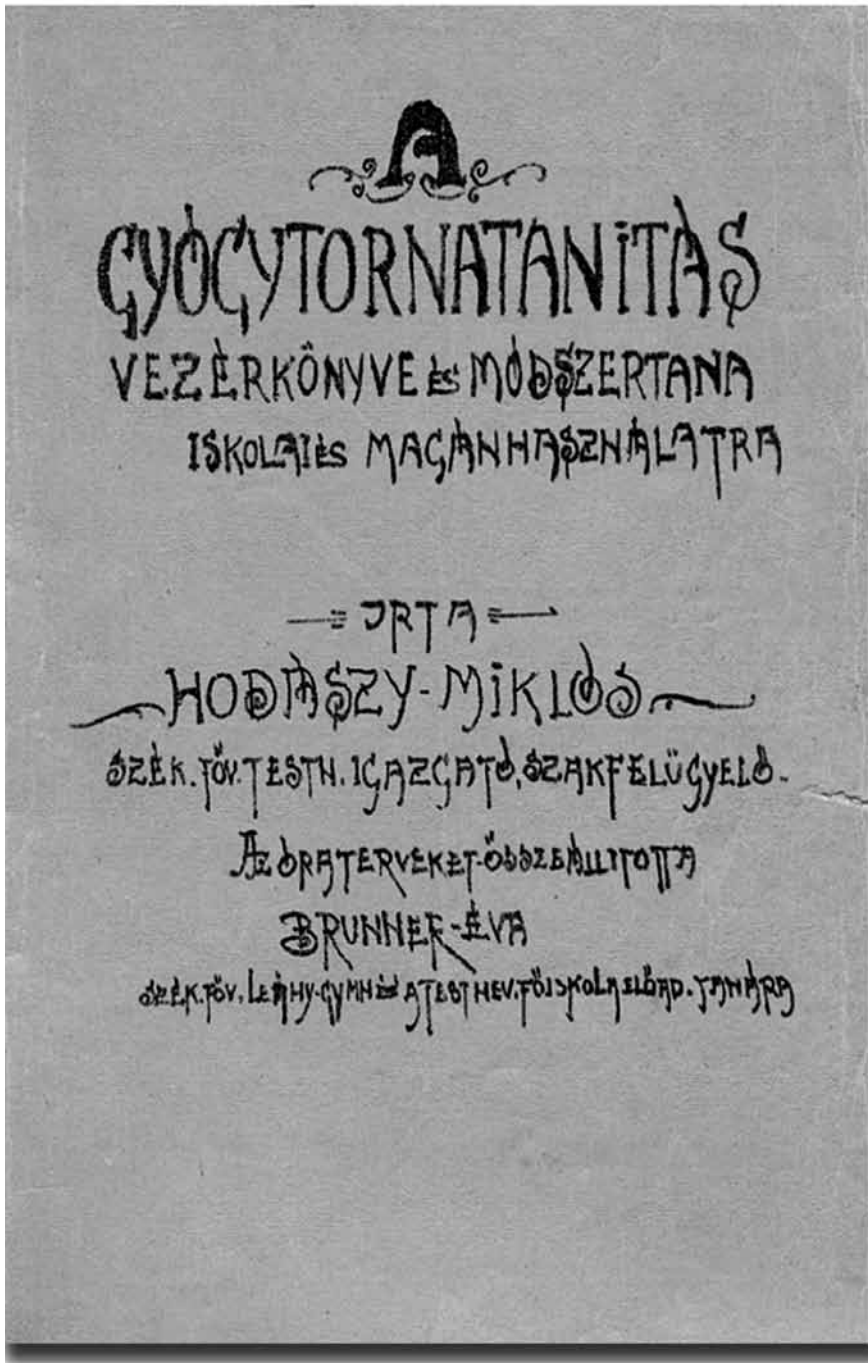 A
GYÓGYTORNATANITÁS
VEZÉRKÖNYVE ÉS MÓDSZERTANA
ISKOLAI ÉS MAGÁNHASZNÁLATRA
IRTA
HODÁSZY-MIKLÓS
SZÉK.FŐV.TESTN.IGAZGATÓ,SZAKFELÜGYELŐ-
AZ ÓRATERVEKET-ÖSSZEÁLLITOTTA
BRUNNER-ÉVA
SZÉK.FŐV.LEÁNY-GYMN ÉS A TESTNEV.FŐISKOLA ELŐAD.TANÁRA